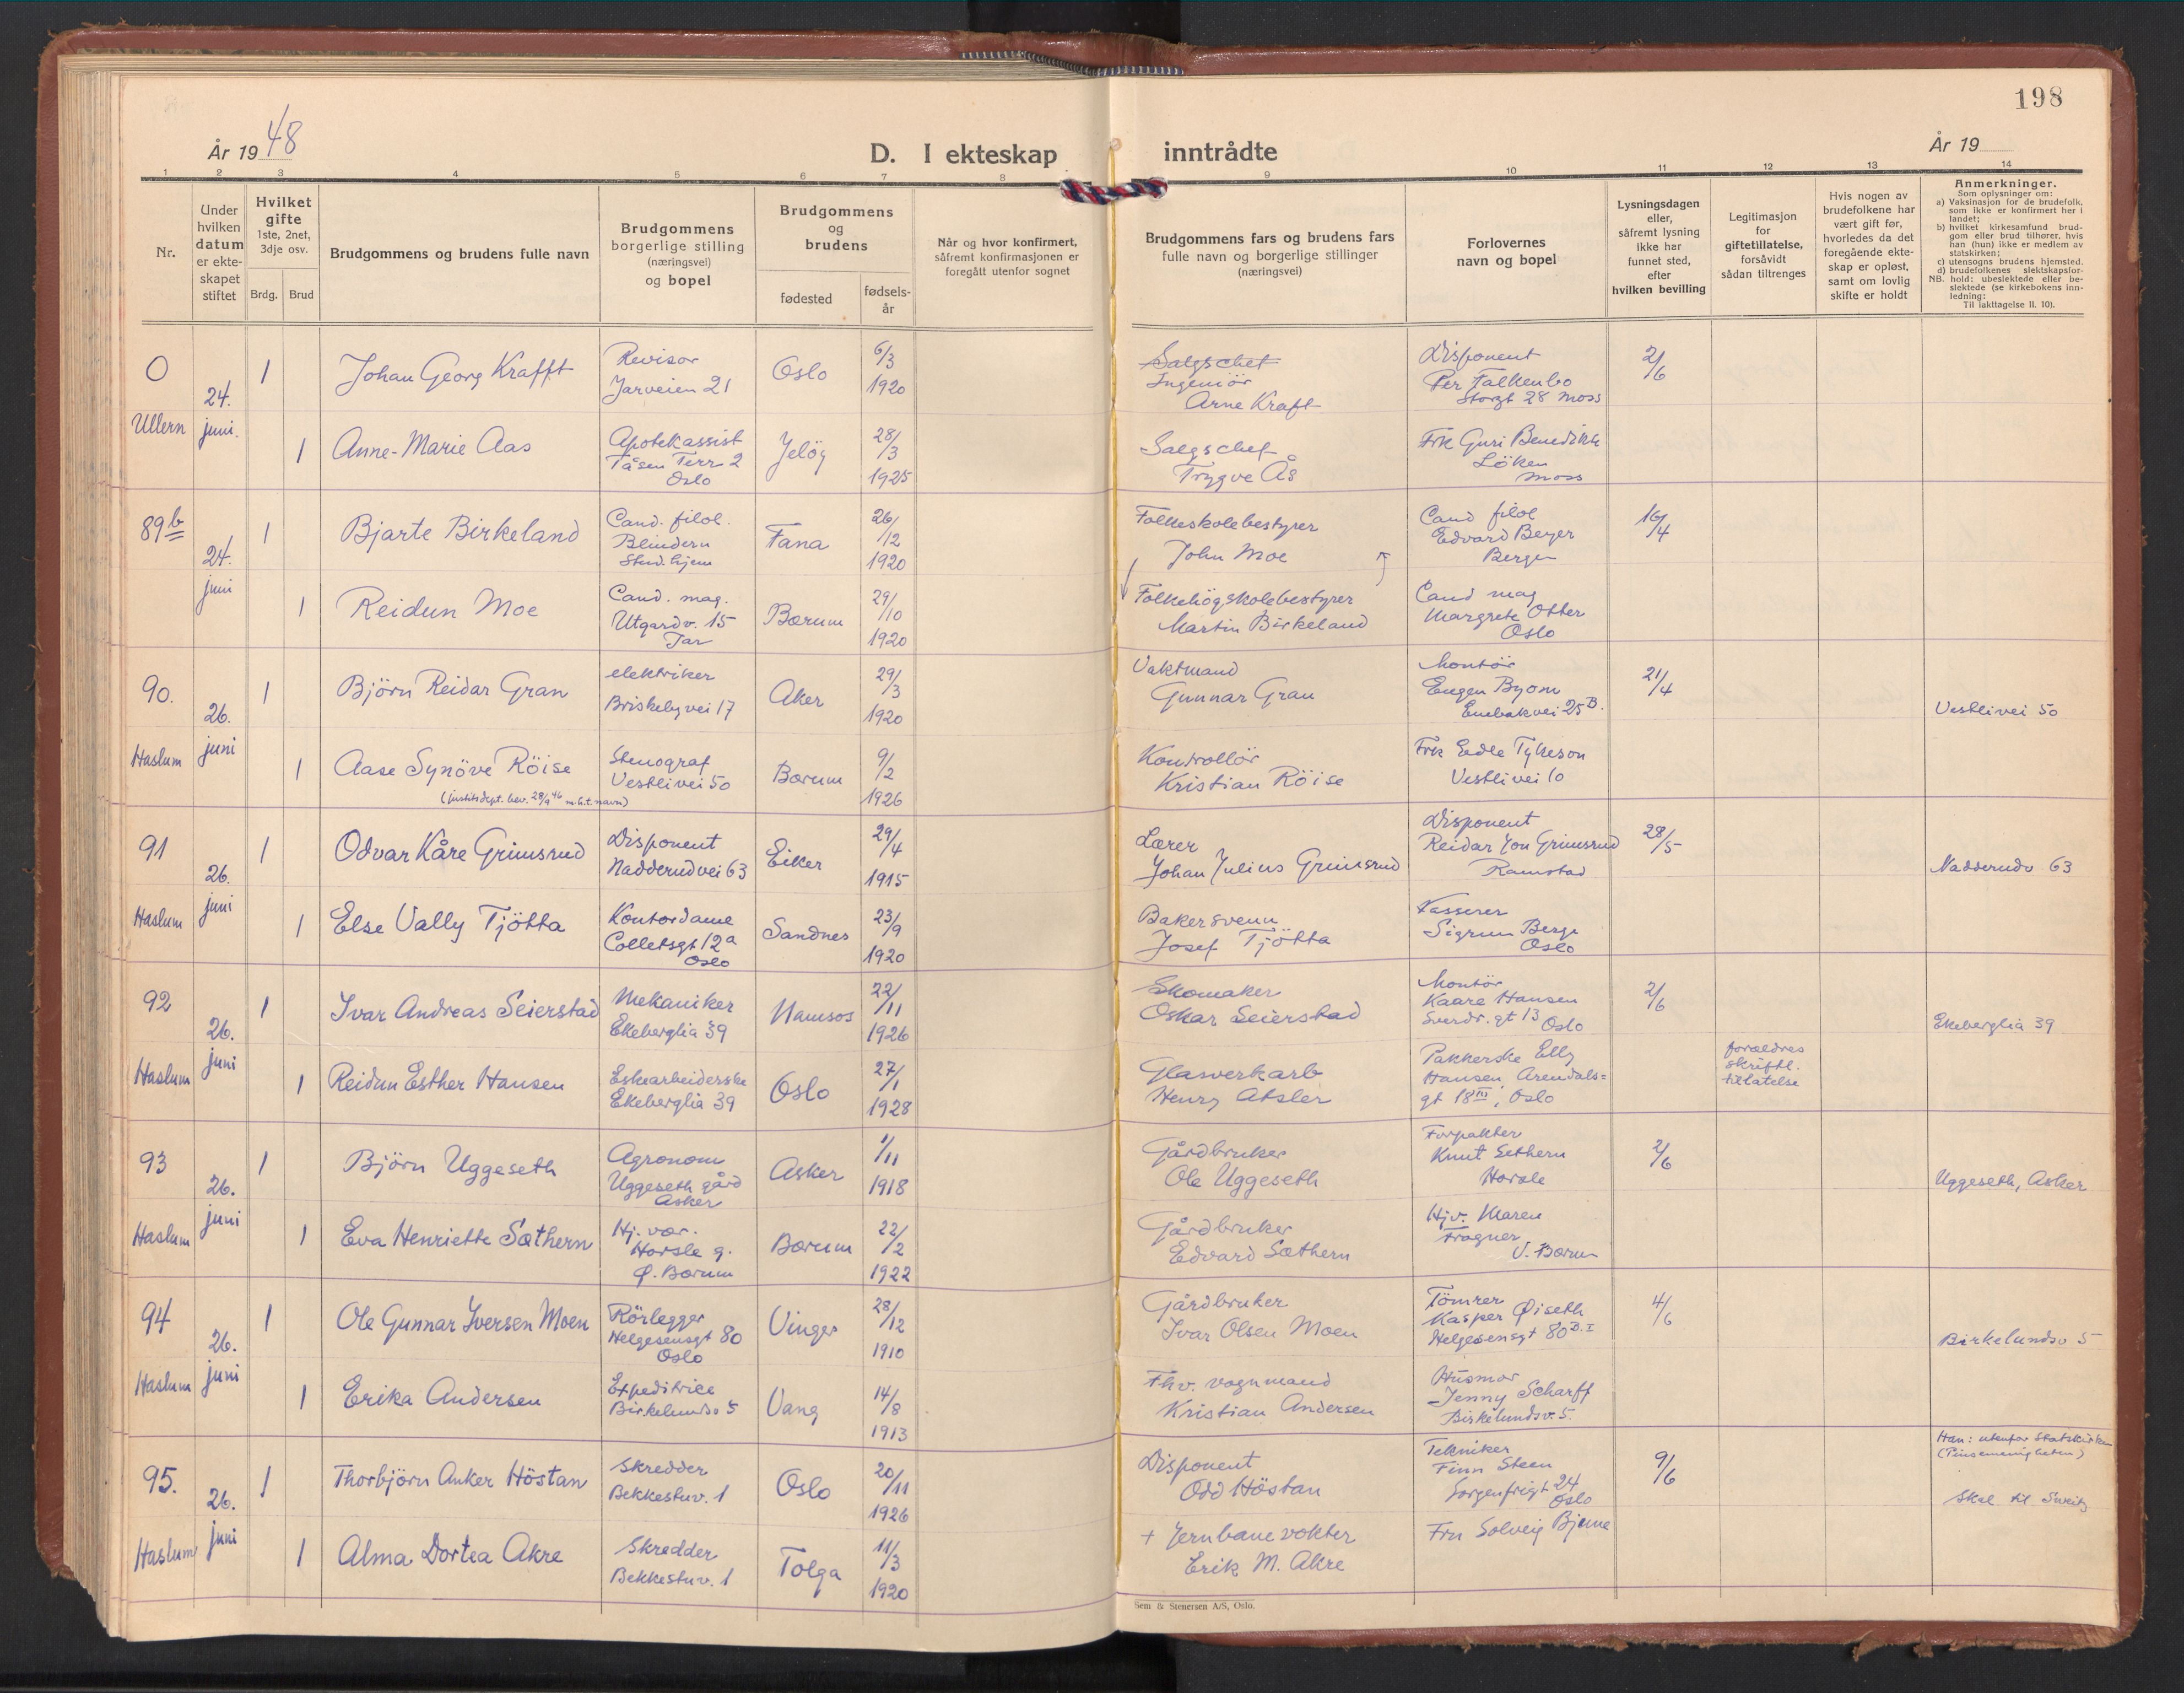 198
År 1948
D. I ekteskap inntrådte
År 19
1 2 3 4 5 6 7 8 9 10 11 12 13 14
Nr.
Under hvilken datum er ekteskapet stiftet
Hvilket gifte 1ste, 2net, 3dje osv.
Brdg. Brud
Brudgommens og brudens fulle navn
Brudgommens borgerlige stilling (næringsvei) og bopel
Brudgommens og brudens
fødested
fødselsår
Når og hvor konfirmert, såfremt konfirmasjonen er foregått utenfor sognet
Brudgommens fars og brudens fars fulle navn og borgerlige stillinger (næringsvei)
Forlovernes navn og bopel
Lysningsdagen eller, såfremt lysning ikke har funnet sted, efter hvilken bevilling
Legitimasjon for giftetillatelse, forsåvidt sådan tiltrenges
Hvis nogen av brudefolkene har vært gift før, hvorledes da det foregående ekteskap er opløst, samt om lovlig skifte er holdt
Anmerkninger.
Som oplysninger om:
a) Vaksinasjon for de brudefolk, som ikke er konfirmert her i landet;
b) hvilket kirkesamfund brudgom eller brud tilhører, hvis han (hun) ikke er medlem av statskirken;
c) utensogns brudens hjemsted.
d) brudefolkenes slektskapsforhold: ubeslektede eller beslektede (se kirkebokens innledning:
NB.
Til iakttagelse II. 10).
0 24. 1 Johan Georg Krafft Revisor Jarveien 21 Oslo 6/3 1920 Salgschef Ingeniör Arne Kraft Disponent Per Falkenbo Storgt 28 Moss 2/6
Ullern juni. 1 Anne-Marie Aas Apotekassist Tåsen Terr 2 Oslo Jelöy 28/3 1925 Salgschef Trygve Ås Frk Guri Benedikte Löken Moss
89b 24. 1 Bjarte Birkeland Cand. filol. Blindern Stud. hjem Fana 26/12 1920 Folkeskolebestyrer John Moe Cand filol Edvard Beyer Bergen 16/4
juni 1 Reidun Moe Cand. mag. Utgardv. 15 Jar Bærum 29/10 1920 Folkehögskolebestyrer Martin Birkeland Cand mag Margrete Otter Oslo
90. 26. 1 Björn Reidar Gran elektriker Briskebyvei 17 Aker 29/3 1920 Vaktmand Gunnar Gran Montör Eugen Byom Enebakvei 25B. 21/4 Vestlivei 50
Haslum juni 1 Aase Synöve Röise Stenograf Vestlivei 50 Bærum 9/2 1926 Kontrollör Kristian Röise Frk Eedle Tykeson Vestlivei 10
(justitsdept. bev. 28/9 46 m.h.t. navn)
91 26. 1 Odvar Kåre Grimsrud Disponent Nadderudvei 63 Eiker 29/4 1915 Lærer Johan Julius Grimsrud Disponent Reidar Jon Grimsrud Ramstad 28/5 Nadderudv 63
Haslum juni 1 Else Vally Tjötta Kontordame Colletsgt 12a Oslo Sandnes 23/9 1920 Bakersvenn Josef Tjötta Kasserer Sigrun Berge Oslo
92 26. 1 Ivar Andreas Seierstad Mekaniker Ekeberglia 39 Namsos 22/11 1926 Skomaker Oskar Seierstad Montör Kaare Hansen Sverdr. gt 13 Oslo 2/6 Ekeberglia 39
Haslum juni 1 Reidun Esther Hansen Eskearbeiderske Ekeberglia 39 Oslo 27/1 1928 Glasverkarb Henry Atsler Pakkerske Elly Hansen, Arendals= gt 18 III, Oslo forældres skriftl. tillatelse
93 26. 1 Björn Uggeseth Agronom Uggeseth gård Asker Asker 1/11 1918 Gårdbruker Ole Uggeseth Forpakter Knut Sethern Horsle 2/6 Uggeseth, Asker
Haslum juni 1 Eva Henriette Sæthern Hj. vær. Horsle g. Ø. Bærum Bærum 22/2 1922 Gårdbruker Edvard Sæthern Hjv. Maren Fragner V. Bærum
94 26. 1 Ole Gunnar Iversen Moen Rörlegger Helgesensgt 80 Oslo Vinger 28/12 1910 Gårdbruker Ivar Olsen Moen Tömrer Kasper Øiseth Helgesensgt 80B.I 4/6 Birkelundsv 5
Haslum juni 1 Erika Andersen Expeditrice Birkelundsv 5 Vang 14/8 1913 Fhv. vognmand Kristian Andersen Husmor Jenny Scharff Birkelundsv. 5.
95. 26. 1 Thorbjörn Anker Höstan Skredder Bekkestuv. 1 Oslo 20/11 1926 Disponent Odd Höstan Tekniker Finn Steen Sorgenfrigt 24 Oslo 9/6 Han: utenfor Statskirken (Pinsemenigheten) Skal til Sveitz
Haslum juni 1 Alma Dortea Akre Skredder Bekkestuv. 1 Tolga 11/3 1920 + Jernbanevokter Erik M. Akre Fru Solveig Bjerne
Sem & Stenersen A/S, Oslo.